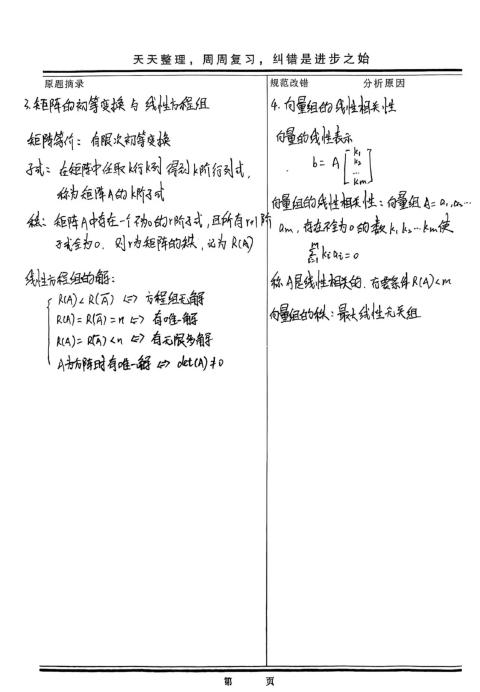 天天整理，周周复习，纠错是进步之始
原题摘录
规范改错 分析原因
3.矩阵的初等变换与线性方程组
矩阵等价：有限次初等变换
子式：在矩阵中任取k行k列得到k阶行列式，
称为矩阵A的k阶子式
秩：矩阵A中存在一个不为0的r阶子式，且所有r+1阶
子式全为0．则r为矩阵的秩，记为R(A)
线性方程组的解：
R(A)<R(Ā) <=> 方程组无解
R(A)=R(Ā)=n <=> 有唯一解
R(A)=R(Ā)<n <=> 有无限多解
A为方阵时有唯一解 <=> det(A)≠0
4.向量组的线性相关性
向量的线性表示
b=A[k₁ k₂ ... km]
向量组的线性相关性：向量组A=a₁,a₂…
am，存在不全为0的数k₁,k₂…km使
Σkᵢaᵢ=0
称A是线性相关的．充要条件R(A)<m
向量组的秩：最大线性无关组
第 页